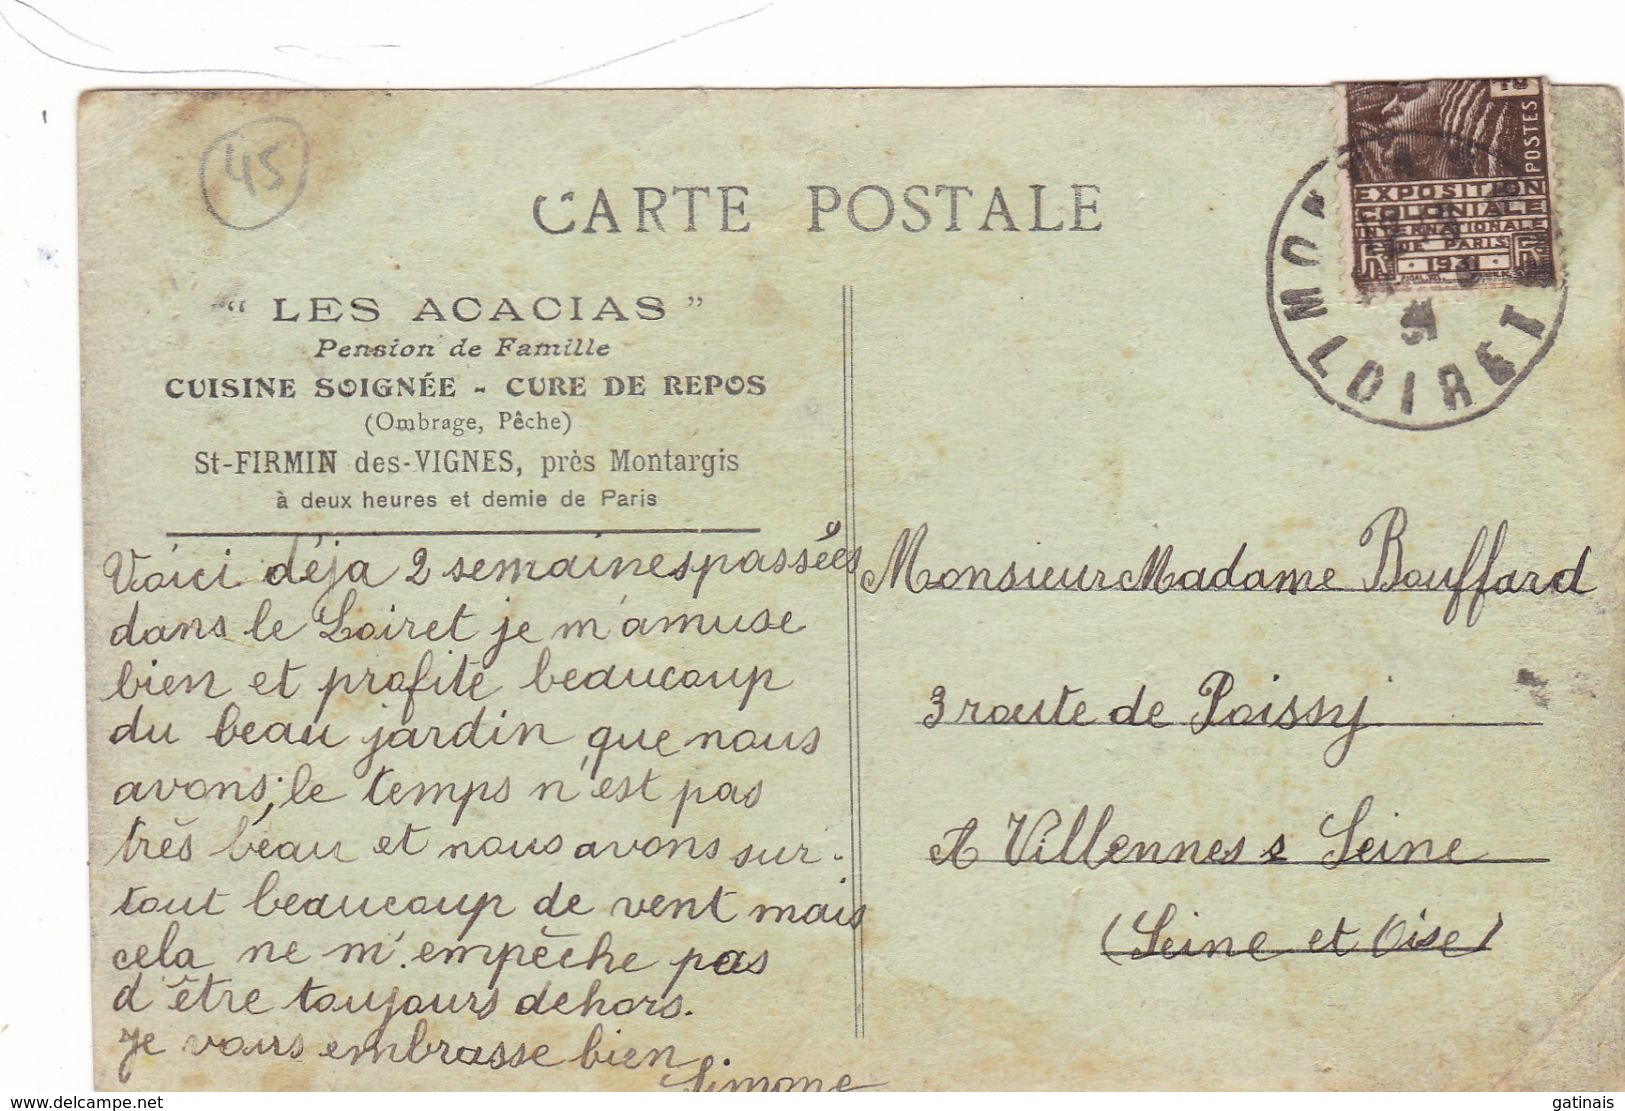 45
CARTE POSTALE
POSTES
EXPOSITION
COLONIALE
INTERNATIONALE
DE PARIS
1931
31
LOIRET
" LES ACACIAS "
Pension de Famille
CUISINE SOIGNÉE - CURE DE REPOS
(Ombrage, Pêche)
St-FIRMIN des-VIGNES, près Montargis
à deux heures et demie de Paris
Voici déja 2 semaines passées
dans le Loiret je m'amuse
bien et profite beaucoup
du beau jardin que nous
avons; le temps n'est pas
très beau et nous avons sur-
tout beaucoup de vent mais
cela ne m'empêche pas
d'être toujours dehors.
Je vous embrasse bien.
Simone
Monsieur Madame Bouffard
3 route de Poissy
A Villennes s Seine
(Seine et Oise)
delcampe.net
gatinais